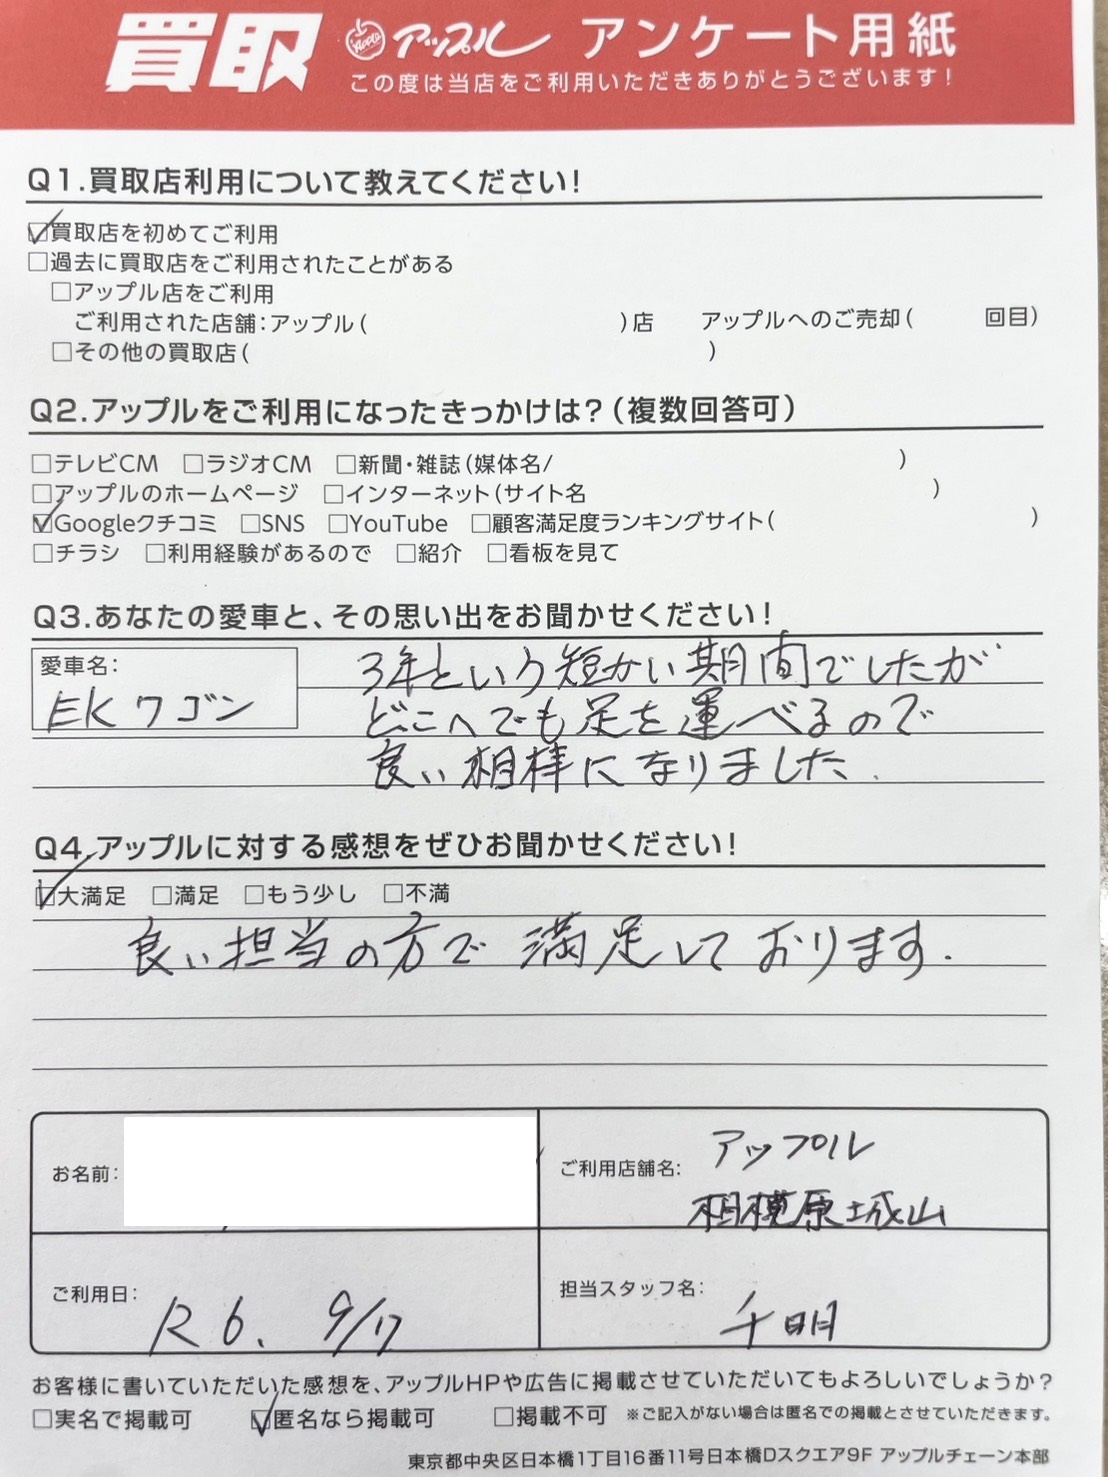 買取 Apple アップル アンケート用紙
この度は当店をご利用いただきありがとうございます!
Q1.買取店利用について教えてください!
☑買取店を初めてご利用
□過去に買取店をご利用されたことがある
□アップル店をご利用
ご利用された店舗:アップル( )店 アップルへのご売却( 回目)
□その他の買取店( )
Q2.アップルをご利用になったきっかけは?(複数回答可)
□テレビCM □ラジオCM □新聞・雑誌(媒体名/ )
□アップルのホームページ □インターネット(サイト名 )
☑Googleクチコミ □SNS □YouTube □顧客満足度ランキングサイト( )
□チラシ □利用経験があるので □紹介 □看板を見て
Q3.あなたの愛車と、その思い出をお聞かせください!
愛車名:
EKワゴン
3年という短かい期間でしたが
どこへでも足を運べるので
良い相棒になりました.
Q4.アップルに対する感想をぜひお聞かせください!
☑大満足 □満足 □もう少し □不満
良い担当の方で満足しております.
お名前:
ご利用店舗名: アップル
相模原城山
ご利用日: R6. 9/17
担当スタッフ名: 千明
お客様に書いていただいた感想を、アップルHPや広告に掲載させていただいてもよろしいでしょうか?
□実名で掲載可 ☑匿名なら掲載可 □掲載不可 ※ご記入がない場合は匿名での掲載とさせていただきます。
東京都中央区日本橋1丁目16番11号日本橋Dスクエア9F アップルチェーン本部